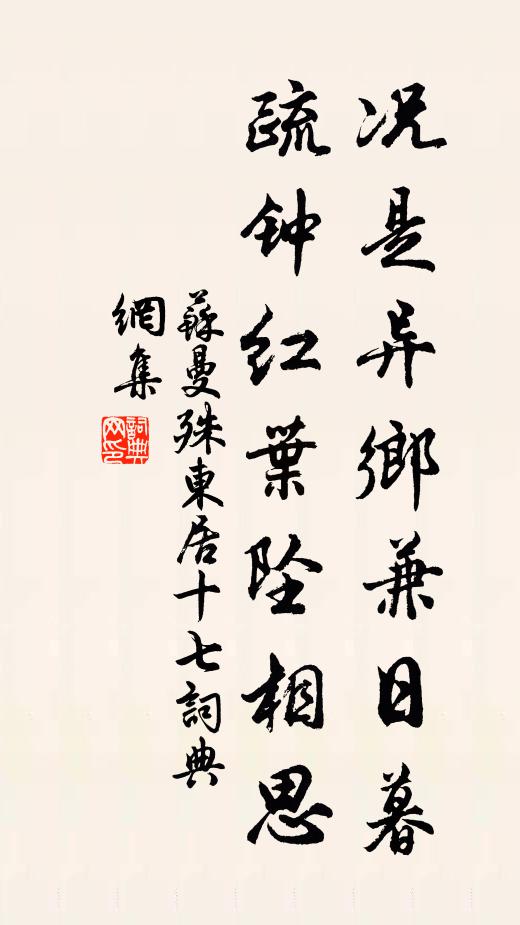 况是异鄉兼日暮
疏钟红葉坠相思
蘇曼殊東居十七詞典
網集
詞典網印